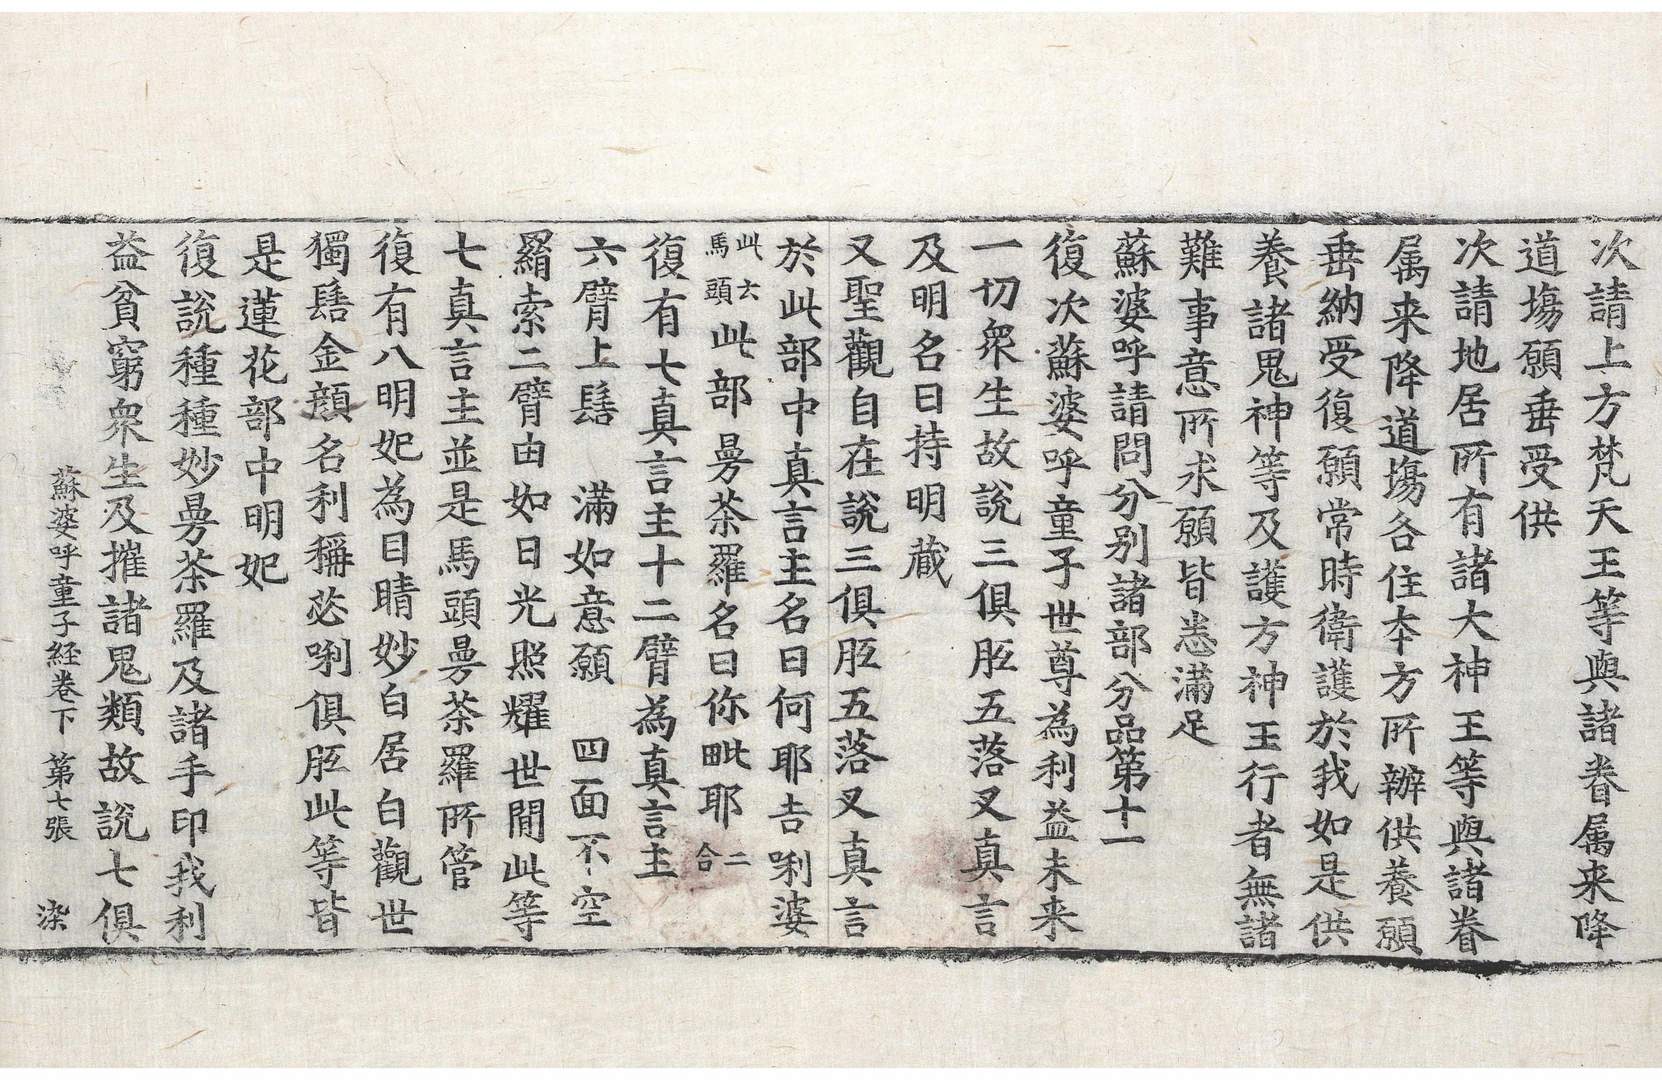 次請上方梵天王等與諸眷属来降
道場願垂受供
次請地居所有諸大神王等與諸眷
属来降道場各住本方所辦供養願
垂納受復願常時衛護於我如是供
養諸鬼神等及護方神王行者無諸
難事意所求願皆悉滿足
蘇婆呼請問分别諸部分品第十一
復次蘇婆呼童子世尊為利益未来
一切衆生故說三俱胝五落叉真言
及明名曰持明藏
又聖觀自在說三俱胝五落叉真言
於此部中真言主名曰何耶吉唎婆
此云馬頭此部曼荼羅名曰你毗耶二合
復有七真言主十二臂為真言主
六臂上髻 滿如意願 四面不空
羂索二臂由如日光照耀世間此等
七真言主並是馬頭曼荼羅所管
復有八明妃為目晴妙白居白觀世
獨髻金顔名利稱苾唎俱胝此等皆
是蓮花部中明妃
復說種種妙曼荼羅及諸手印我利
益貧窮衆生及摧諸鬼類故說七俱
蘇婆呼童子経卷下 第七張 染